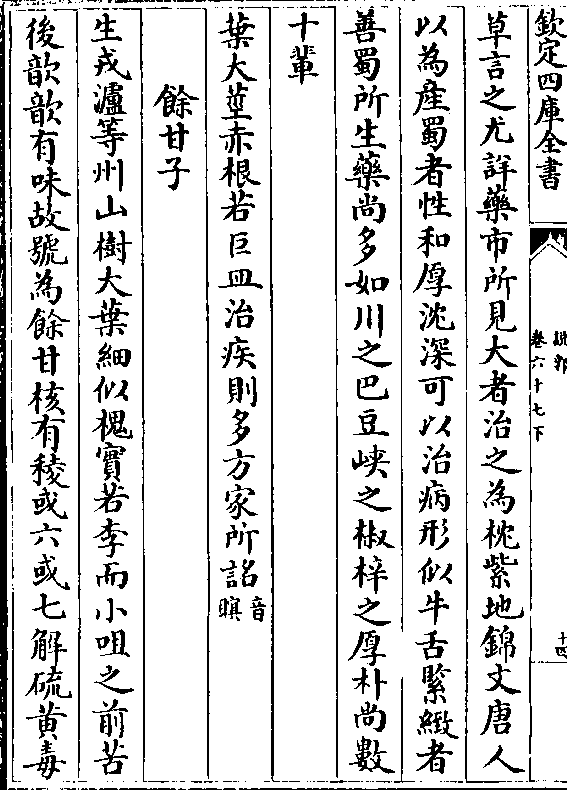 欽定四庫全書
說郛
卷六十七下
十四
草言之尤詳藥市所見大者治之為枕紫地錦文唐人
以為産蜀者性和厚沈深可以治病形似牛舌緊緻者
善蜀所生藥尚多如川之巴豆峡之椒梓之厚朴尚數
十輩
葉大莖赤根若巨皿治疾則多方家所詺音瞑
餘甘子
生戎瀘等州山樹大葉細似槐實若李而小咀之前苦
後歆歆有味故號為餘甘核有稜或六或七解硫黄毒